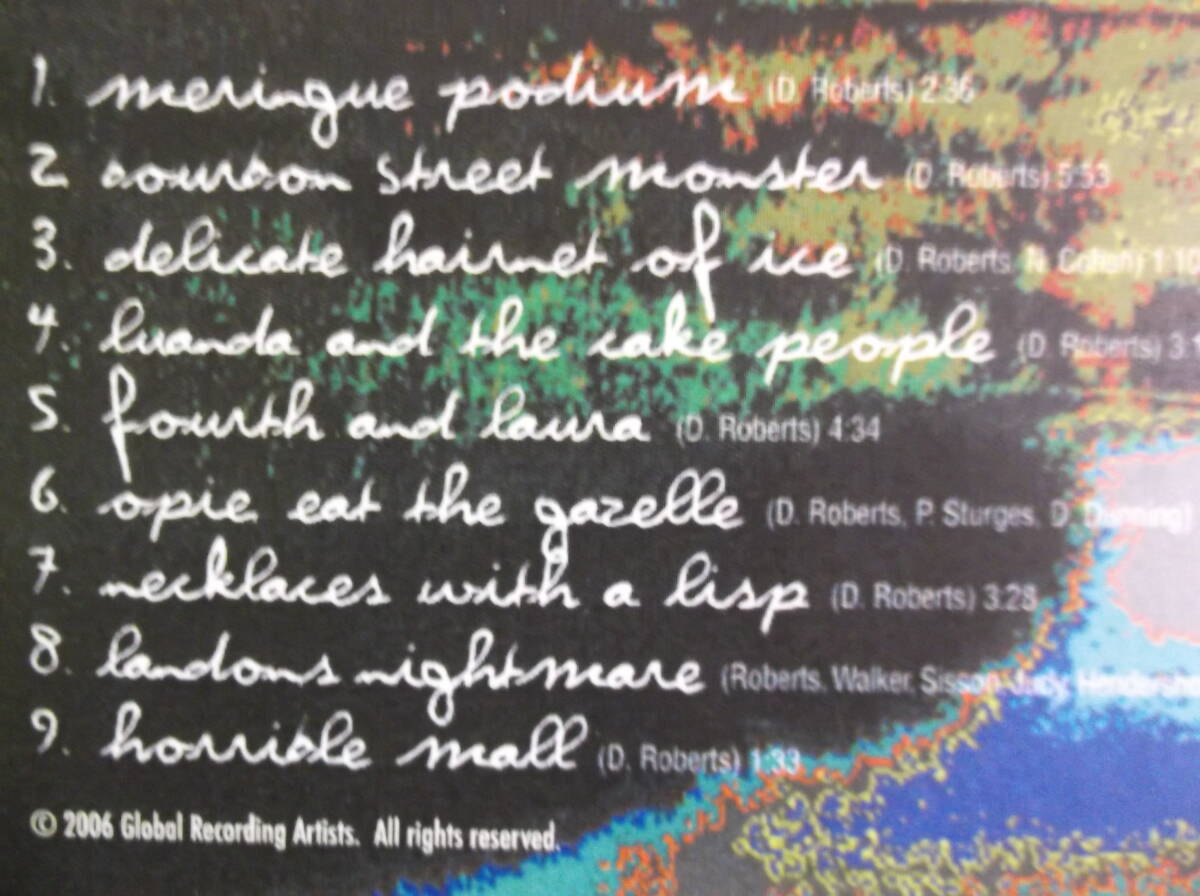 1. meringue podium (D. Roberts) 2:36
2. bourbon street monster (D. Roberts) 5:53
3. delicate hairnet of ice (D. Roberts, N. Cohen) 1:10
4. luanda and the cake people (D. Roberts) 3:1
5. fourth and laura (D. Roberts) 4:34
6. opie eat the gazelle (D. Roberts, P. Sturges, D. Dunning)
7. necklaces with a lisp (D. Roberts) 3:28
8. landons nightmare (Roberts, Walker, Sisson
9. horrible mall (D. Roberts) 1:33
© 2006 Global Recording Artists. All rights reserved.